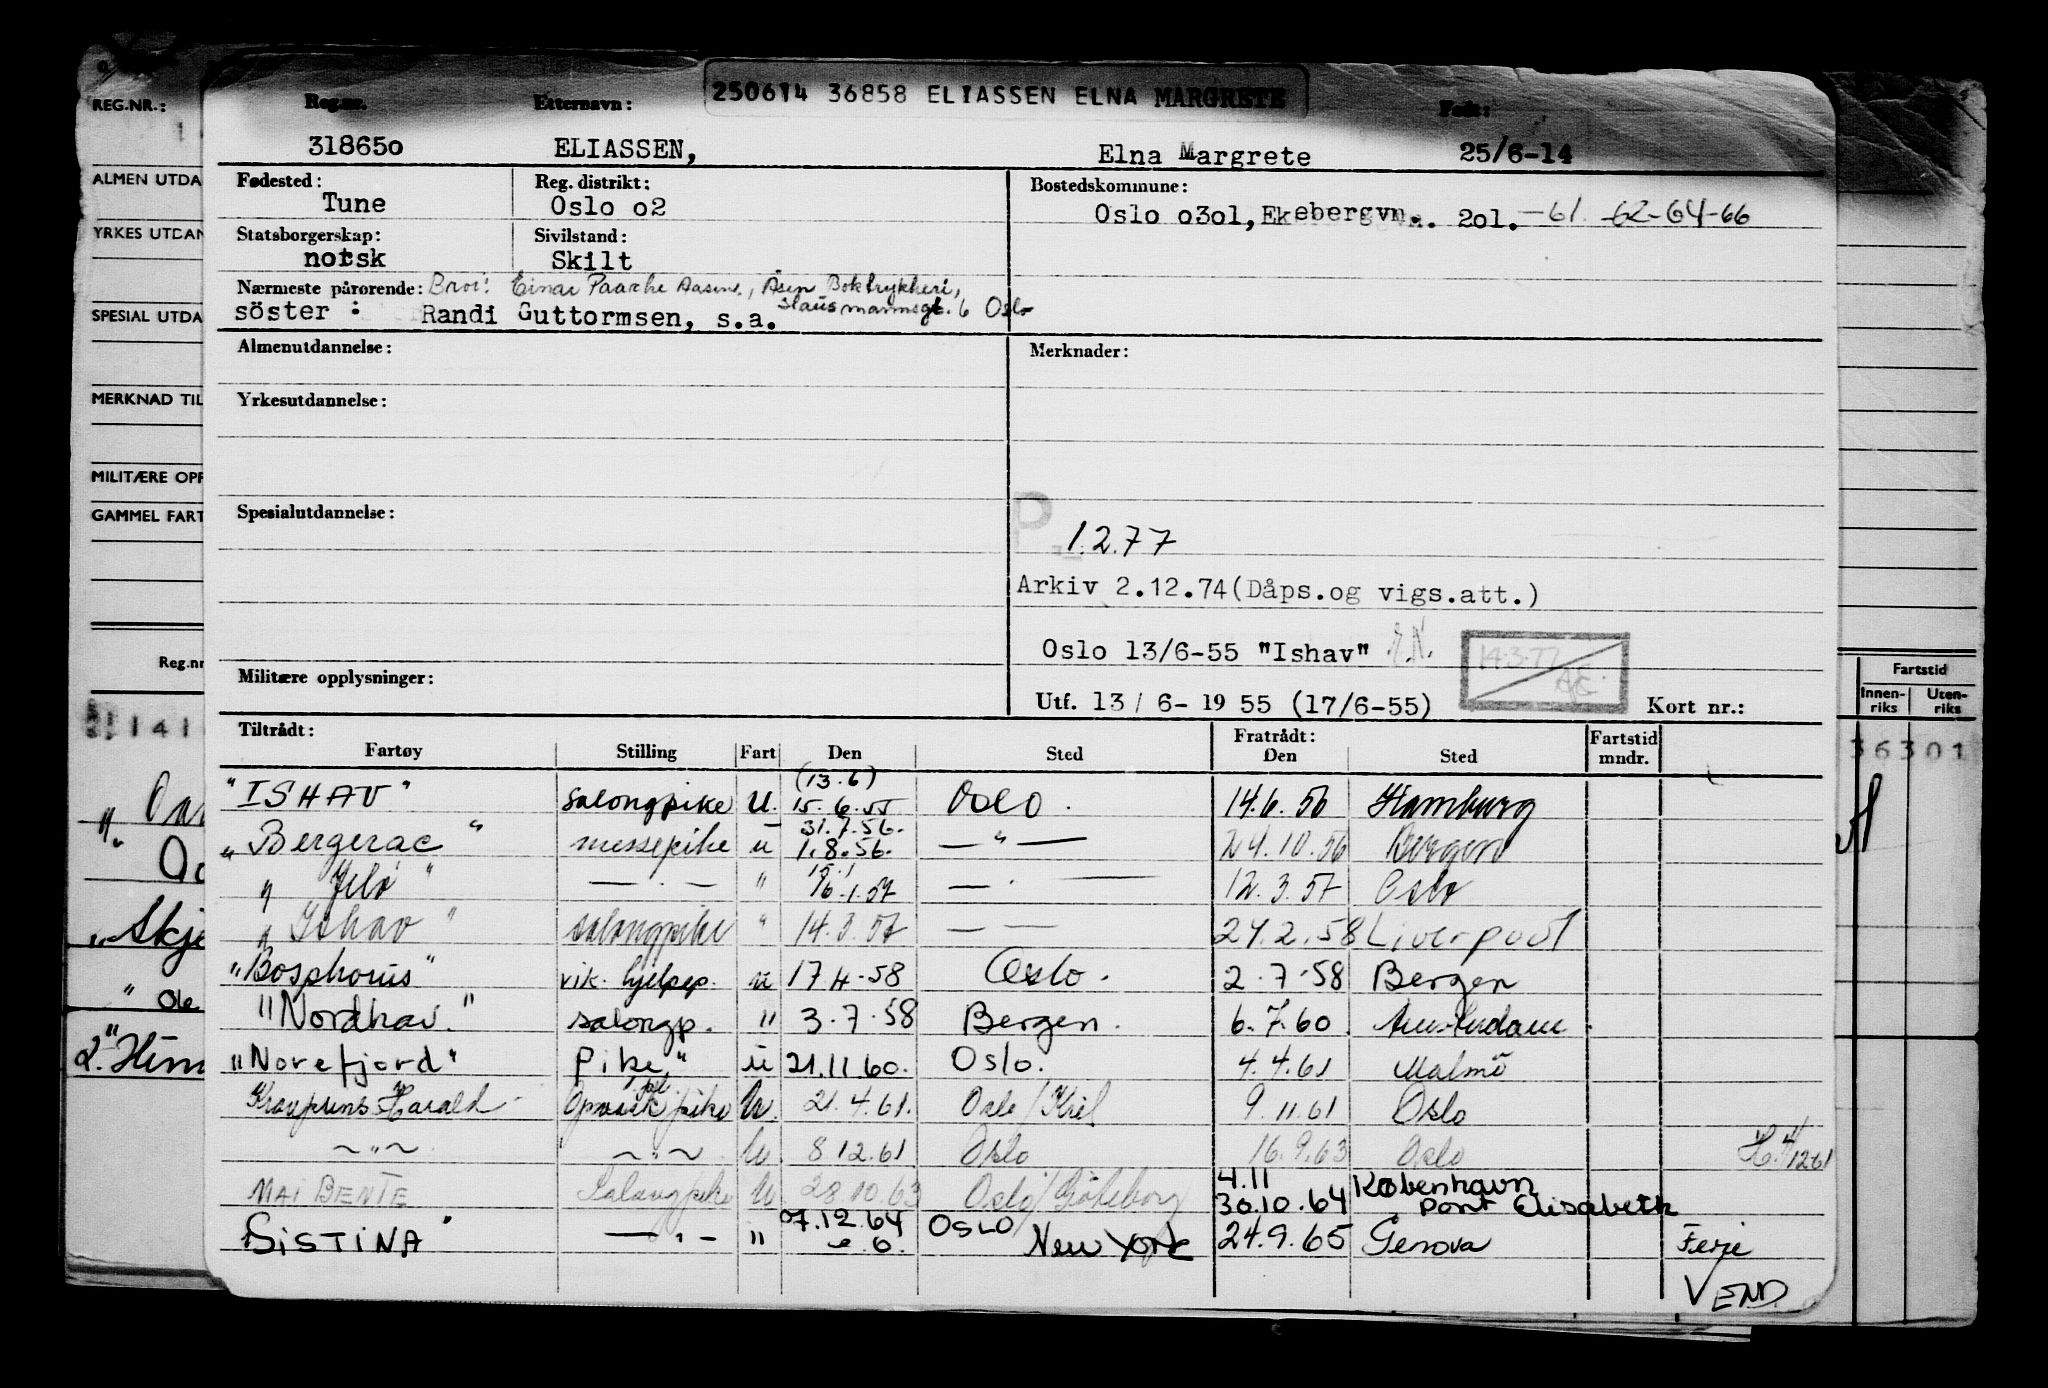 250614 36858 ELIASSEN ELNA MARGRETE
REG.NR.: Reg.nr. Etternavn: Født:
318650 ELIASSEN, Elna Margrete 25/6-14
ALMEN UTDA Fødested: Reg. distrikt: Bostedskommune:
Tune Oslo o2 Oslo o3o1, Ekebergvn. 2o1. -61. -62-64-66
YRKES UTDAN Statsborgerskap: Sivilstand:
norsk Skilt
Nærmeste pårørende: Bror: Einar Paaske Aasen, Åsen Boktrykkeri,
SPESIAL UTDA söster : Randi Guttormsen, s.a. Hausmannsgt. 6 Oslo
Almenutdannelse: Merknader:
MERKNAD TIL Yrkesutdannelse:
MILITÆRE OPP
GAMMEL FART Spesialutdannelse:
1.2.77
Arkiv 2.12.74(Dåps.og vigs.att.)
Oslo 13/6-55 "Ishav"
14.3.77
Reg.nr Militære opplysninger: Fartstid
Utf. 13/ 6- 19 55 (17/6-55) Kort nr.: Innen-riks Uten-riks
Tiltrådt: Fratrådt: Fartstid mndr.
Fartøy Stilling Fart Den Sted Den Sted
36301
(13.6)
"ISHAV" Salongpike U. 15.6.55 Oslo. 14.6.56 Hamburg
31.7.56.
"Bergerac" messepike u 1.8.56. — " — 24.10.56 Bergen
15.1
" Jelø" — . — " 16.1.57 — . — 12.3.57 Oslo
" Ishav " salongpike " 14.3.57 — — 27.2.58 Liverpool
"Bosphorus" vik. hjelpep. u 17 4-58 Oslo. 2.7-58 Bergen
"Nordhav." salongp. " 3.7.58 Bergen. 6.7.60. Amsterdam
"Norefjord" Pike " u 21.11 60. Oslo. 4.4.61 Malmö
Kronprins Harald Oppvask pike U. 21.4.61. Oslo/Kiel 9.11.61 Oslo
~ " ~ ~ " ~ U 8 12.61 Oslo 16.9.63 Oslo
MAI BENTE Salongpike U 28.10.63 Oslo/Göteborg 4.11 København
30.10.64 Port Elisabeth
SISTINA" — " — " 07.12.64 OSLO New York 24.9.65 Genova Ferie
VEND